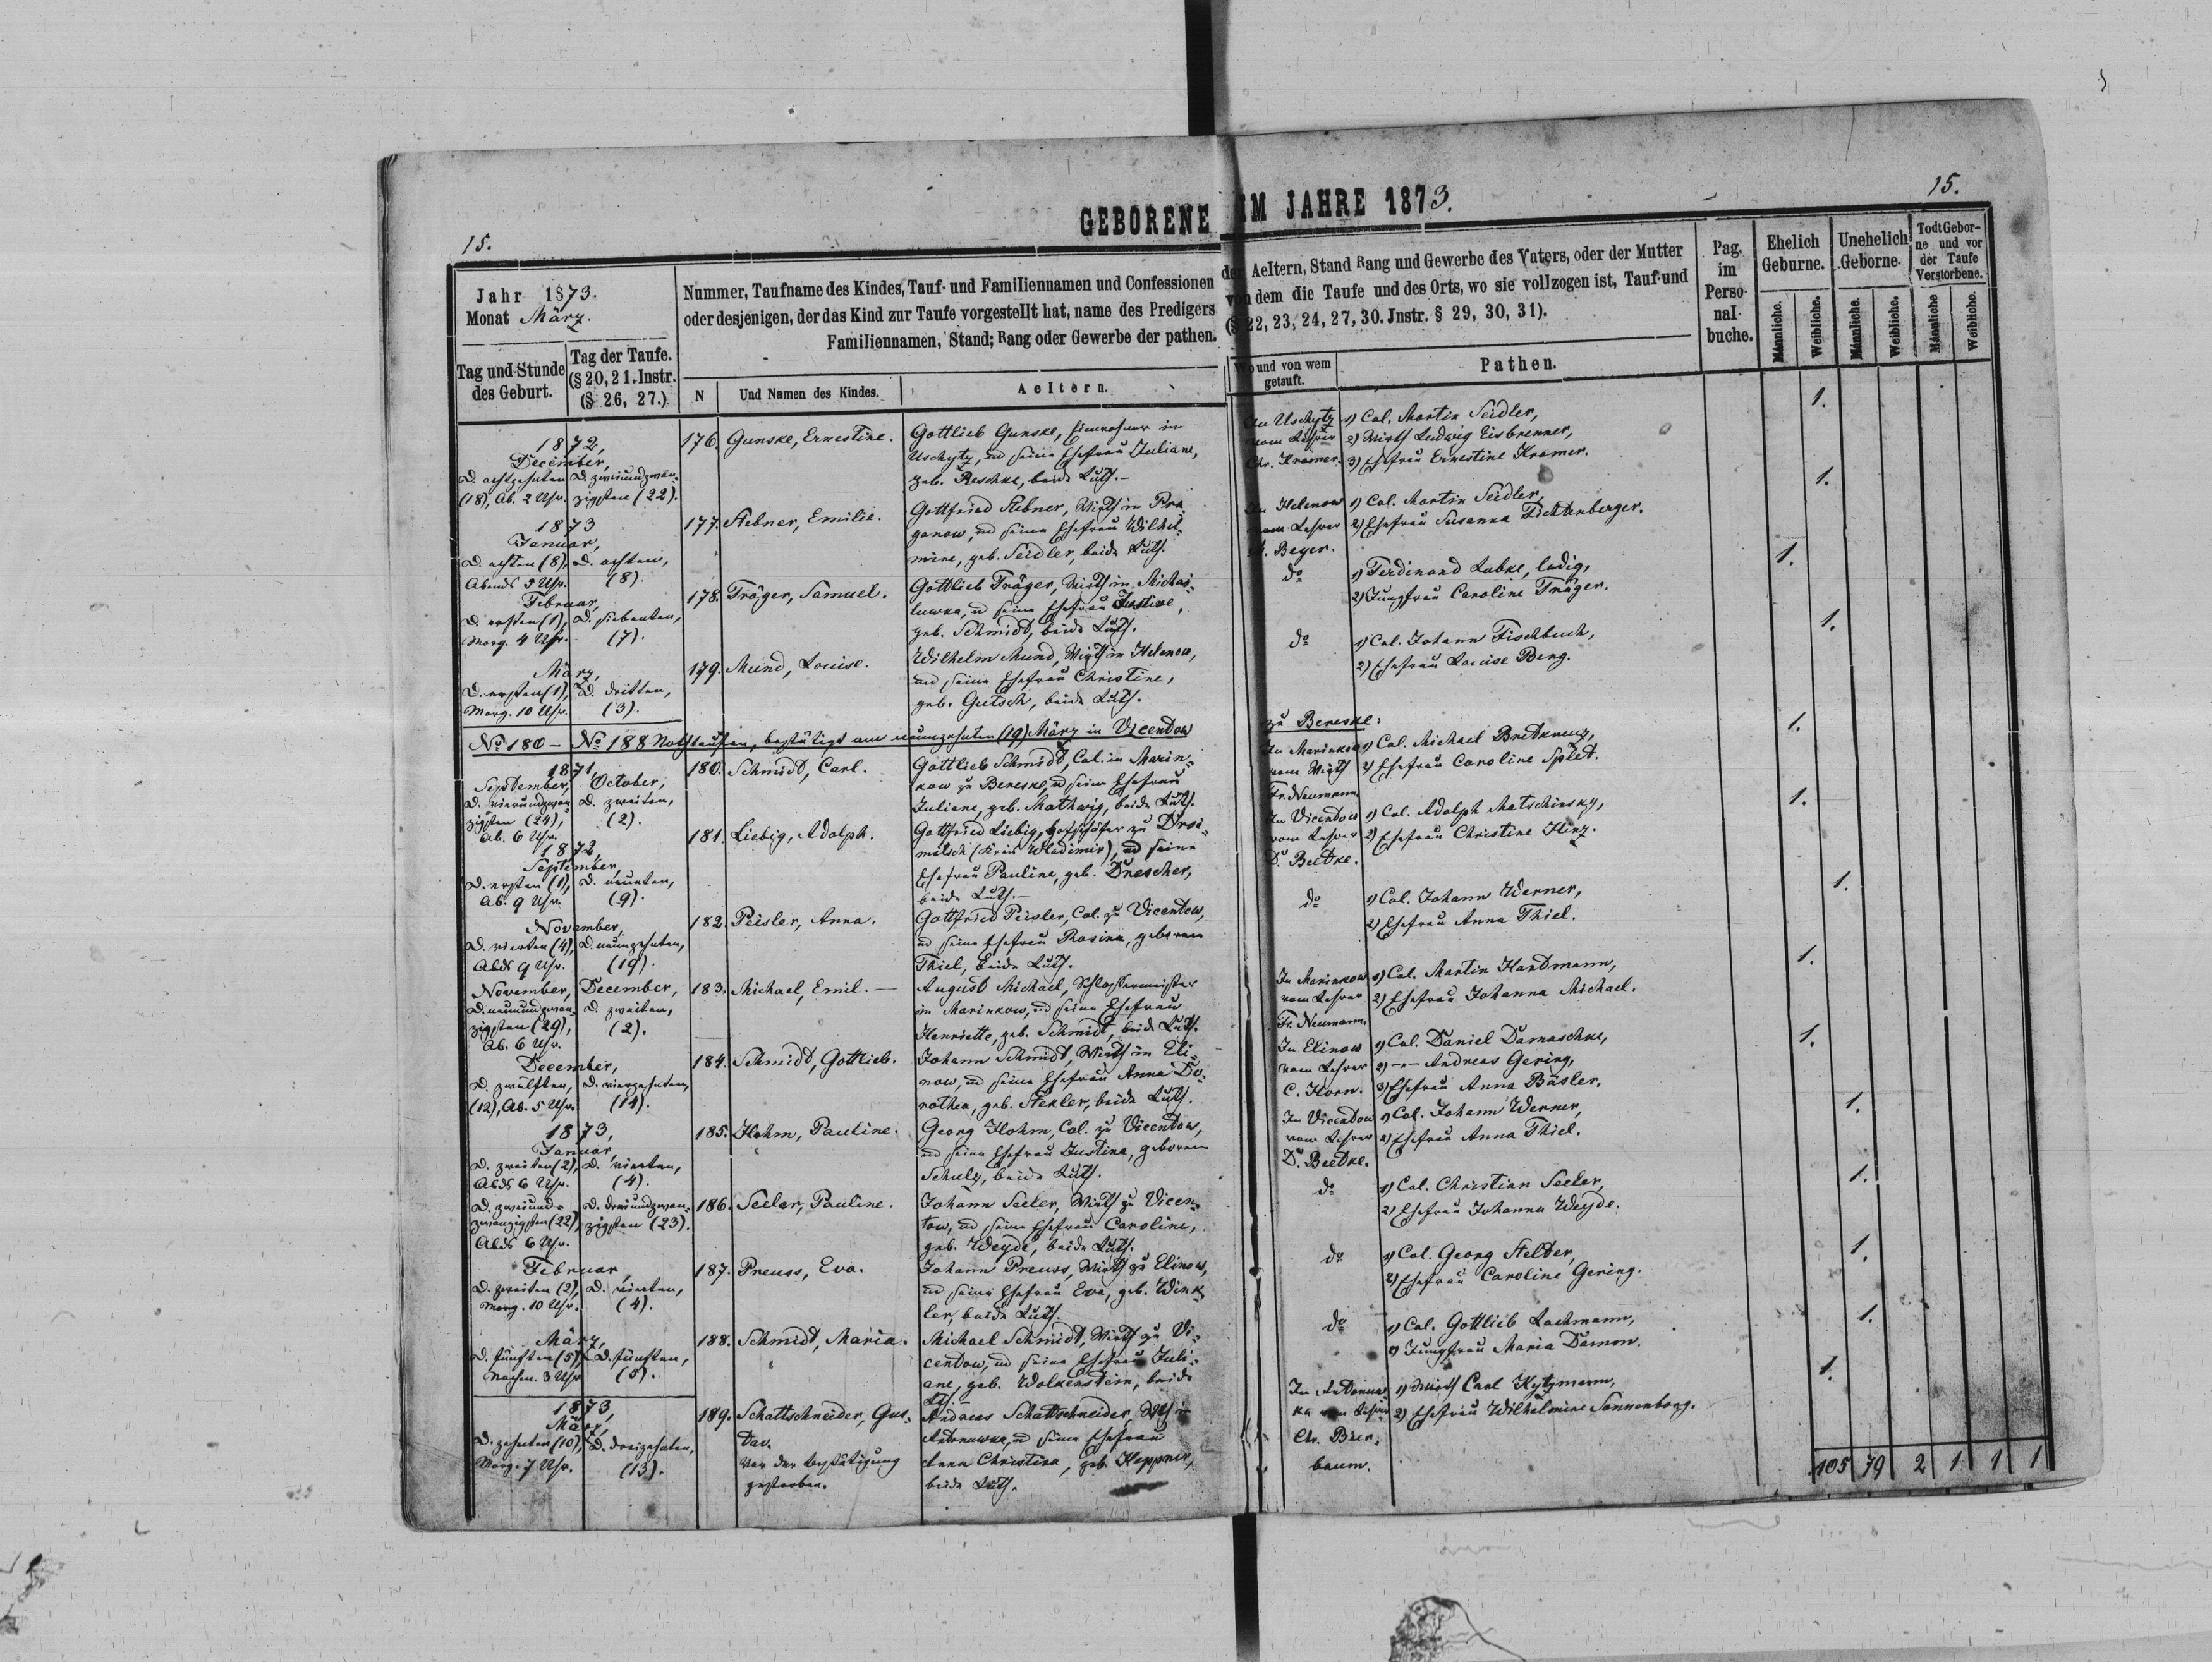 GEBORENE IM JAHRE 1873.
15.
15.
Jahr 1873.
Monat März.
Nummer, Taufname des Kindes, Tauf- und Familiennamen und Confessionen der Aeltern, Stand Rang und Gewerbe des Vaters, oder der Mutter
oder desjenigen, der das Kind zur Taufe vorgestellt hat, name des Predigers von dem die Taufe und des Orts, wo sie vollzogen ist, Tauf-und
Familiennamen, Stand; Rang oder Gewerbe der pathen. (§ 22, 23, 24, 27, 30. Jnstr. § 29, 30, 31).
Tag und Stunde
des Geburt.
Tag der Taufe.
(§ 20, 21. Instr.
(§ 26, 27.)
N
Und Namen des Kindes.
Aeltern.
Wo und von wem
getauft.
Pathen.
Pag.
im
Perso-
nal-
buche.
Ehelich
Geburne.
Unehelich
Geborne.
Todt Gebor-
ne und vor
der Taufe
Verstorbene.
Männliche.
Weibliche.
Männliche.
Weibliche.
Männliche
Weibliche.
1872,
December,
D. achtzehnten
(18), Ab. 2 Uhr.
D. zweiundzwan-
zigsten (22).
176.
Gunske, Ernestine.
Gottlieb Gunske, Einwohner in
Uschytz, und seine Ehefrau Juliane,
geb. Reschke, beide Luth.-
In Uschytz
vom Lehrer
Chr. Kramer.
1) Col. Martin Seidler,
2) Wirth Ludwig Eisbrenner,
3) Ehefrau Ernestine Kramer.
1.
1873
Januar,
D. achten (8),
Abends 9 Uhr.
D. achten,
(8).
177.
Stebner, Emilie.
Gottfried Stebner, Wirth in Pra-
ganow, und seine Ehefrau Wilhel-
mine, geb. Seidler, beide Luth.
In Helenow
vom Lehrer
Beyer.
1) Col. Martin Seidler,
2) Ehefrau Susanna Fichtenberger.
1.
Februar,
D. ersten (1),
Morg. 4 Uhr.
D. siebenten,
(7).
178.
Träger, Samuel.
Gottlieb Träger, Wirth in Michai-
luwka, und seine Ehefrau Justine,
geb. Schmidt, beide Luth.
do
1) Ferdinand Labke, ledig,
2) Jungfrau Caroline Träger.
1.
März,
D. ersten (1),
Morg. 10 Uhr.
D. dritten,
(3).
179.
Mund, Louise.
Wilhelm Mund, Wirth in Helenow,
und seine Ehefrau Christine,
geb. Gutsch, beide Luth.
do
1) Col. Johann Fischbuch,
2) Ehefrau Louise Berg.
1.
No 180 - No 188 Nothtaufen, bestätigt am neunzehnten (19) März in Vicendow zu Bereske:
1871,
September,
D. vierundzwan-
zigsten (24),
Ab. 6 Uhr.
October,
D. zweiten,
(2).
180.
Schmidt, Carl.
Gottlieb Schmidt, Col. in Marin-
kow zu Bereske, und seine Ehefrau
Juliane, geb. Mathwig, beide Luth.
In Marinkow
vom Wirth
Fr. Neumann.
1) Col. Michael Bretkreuz,
2) Ehefrau Caroline Splet.
1.
1872,
September,
D. ersten (1),
Ab. 9 Uhr.
D. neunten,
(9).
181.
Liebig, Adolph.
Gottfried Liebig, Hofschäfer zu Drsi-
mitsch (Kreis Wladimir), und seine
Ehefrau Pauline, geb. Drescher,
beide Luth.-
In Vicendow
vom Lehrer
D. Beetke.
1) Col. Adolph Matschinsky,
2) Ehefrau Christine Hinz.
1.
November,
D. vierten (4),
Abds 9 Uhr.
D. neunzehnten,
(19).
182.
Peisler, Anna.
Gottfried Peisler, Col. zu Vicendow,
und seine Ehefrau Rosina, geborene
Thiel, beide Luth.
do
1) Col. Johann Werner,
2) Ehefrau Anna Thiel.
1.
November,
D. neunundzwan-
zigsten (29),
Ab. 6 Uhr.
December,
D. zweiten,
(2).
183.
Michael, Emil. —
August Michael, Schlossermeister
in Marinkow, und seine Ehefrau
Henriette, geb. Schmidt, beide Luth.
In Marinkow
vom Lehrer
Fr. Neumann.
1) Col. Martin Hardmann,
2) Ehefrau Johanna Michael.
1.
December,
D. zwölften,
(12), Ab. 5 Uhr.
D. vierzehnten,
(14).
184.
Schmidt, Gottlieb.
Johann Schmidt, Wirth in Eli-
now, und seine Ehefrau Anna Do-
rothea, geb. Stekler, beide Luth.
In Elinow
vom Lehrer
C. Horn.
1) Col. Daniel Damaschke,
2) -"- Andreas Gering,
3) Ehefrau Anna Bäsler.
1.
1873,
Januar,
D. zweiten (2),
Abds 6 Uhr.
D. vierten,
(4).
185.
Hohm, Pauline.
Georg Hohm, Col. zu Vicendow,
und seine Ehefrau Justina, geborene
Schulz, beide Luth.
In Vicendow
vom Lehrer
D. Beetke.
1) Col. Johann Werner,
2) Ehefrau Anna Thiel.
1.
D. zweiund-
zwanzigsten (22),
Abds 6 Uhr.
D. dreiundzwan-
zigsten (23).
186.
Seeler, Pauline.
Johann Seeler, Wirth zu Vicen-
tow, und seine Ehefrau Caroline,
geb. Weyde, beide Luth.
do
1) Col. Christian Seeler,
2) Ehefrau Johanna Weyde.
1.
Februar,
D. zweiten (2),
Morg. 10 Uhr.
D. vierten,
(4).
187.
Preuss, Eva.
Johann Preuss, Wirth zu Elinow,
und seine Ehefrau Eva, geb. Wink-
ler, beide Luth.
do
1) Col. Georg Stelter,
2) Ehefrau Caroline Gering.
1.
März,
D. fünften (5),
Nachm. 3 Uhr
D. fünften,
(5).
188.
Schmidt, Maria.
Michael Schmidt, Wirth zu Vi-
cendow, und seine Ehefrau Juli-
ane, geb. Wolkenstein, beide
Lth.
do
1) Col. Gottlieb Lachmann,
2) Jungfrau Maria Damon.
1.
1873,
März,
D. zehnten (10),
Morg. 7 Uhr.
D. dreizehnten,
(13).
189.
Schattschneider, Gus-
tav.
Vor der Bestätigung
gestorben.
Andreas Schattschneider, Wth in
Antonuwka, und seine Ehefrau
Anna Christina, geb. Hoppner,
beide Luth.
In Antonuw-
ka vom Lehrer
Chr. Bier-
baum.
1) Wirth Carl Kytzmann,
2) Ehefrau Wilhelmine Sonnenberg.
1.
105 79 2 1 1 1